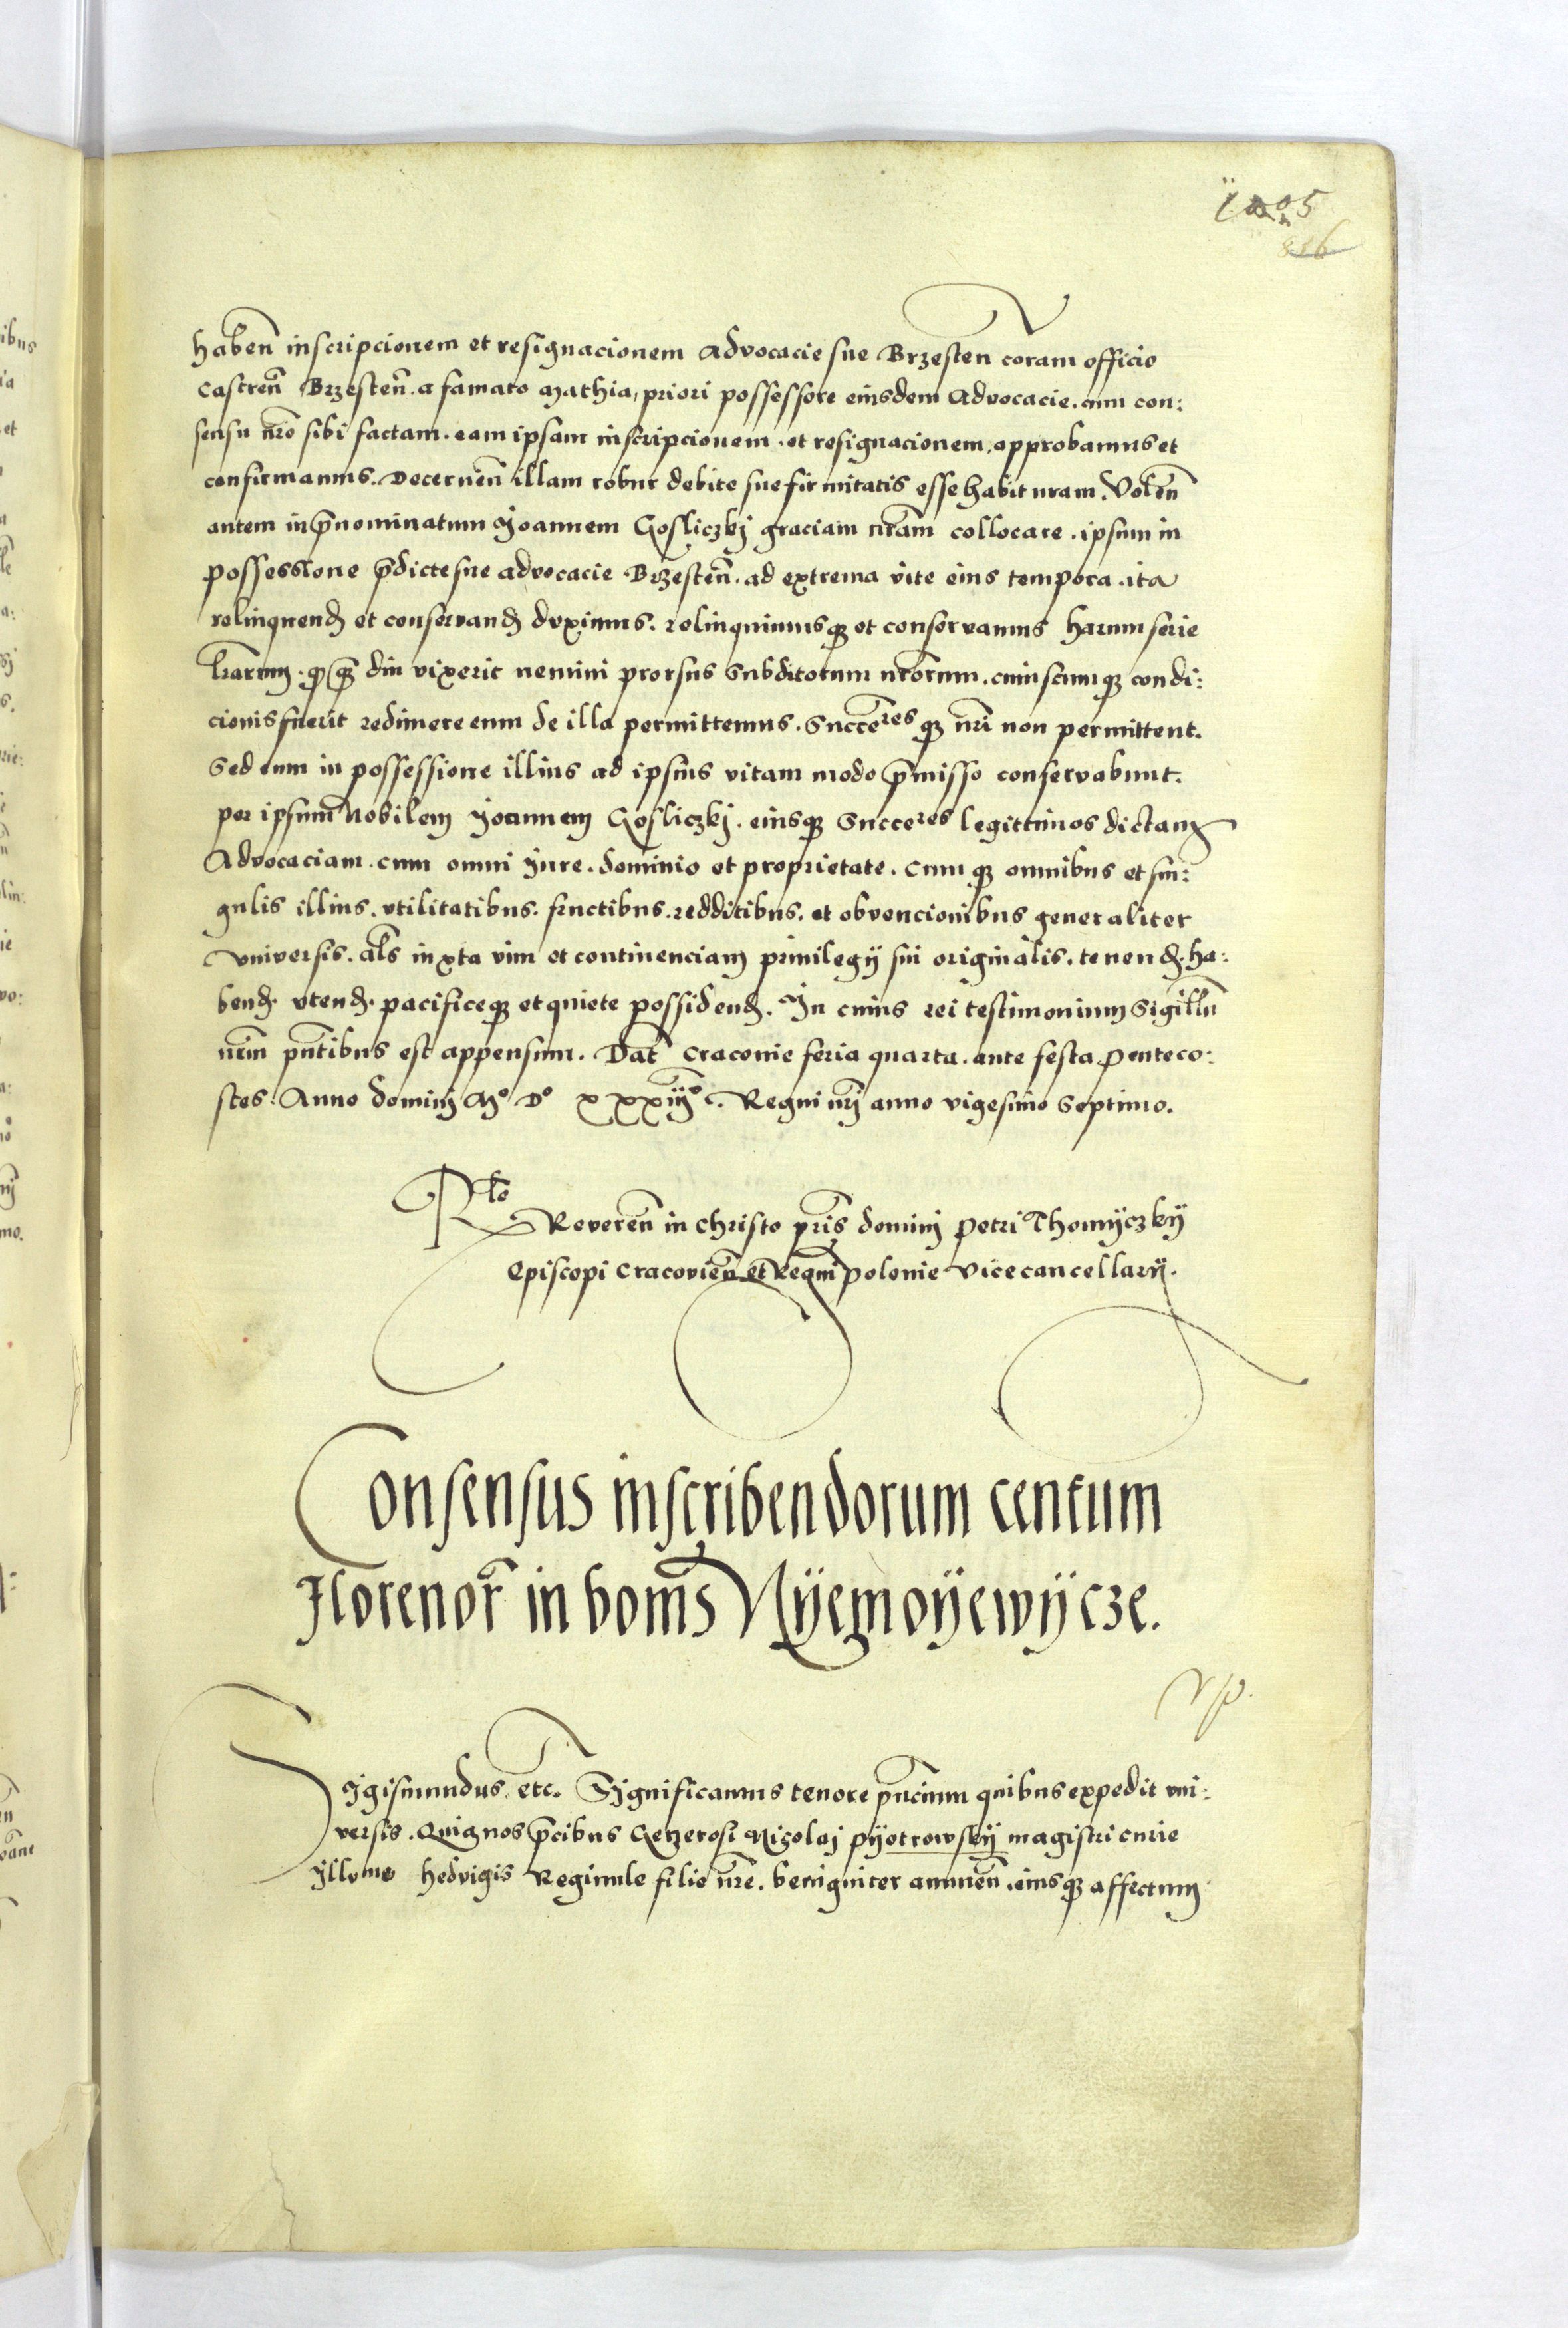 habeñ inscripcionem et resignacionem Advocacie sue Brzesteñ coram officio
Castreñ Brzesteñ. a famato Mathia, priori possessore eiusdem Advocacie. cum con:
sensu nr̃o sibi factam. eam ipsam inscripcionem. et resignacionem. approbamus et
confirmamus. Decerneñ illam robur debite sue firmitatis esse habituram. Voleñ
autem in p̃nominatum Joannem Gosliczkj graciam nr̃am collocare. ipsum in
possessione p̃dicte sue advocacie Brzesteñ. ad extrema vite eius tempora. ita
relinquend̃ et conservand̃ duximus. relinquimusqꝫ et conservamus harum serie
lr̃arum. qꝫ diu vixerit nemini prorsus Subditorum nr̃orum. cuiuscumqꝫ condi:
cionis fuerit redimere eum de illa permittemus. Successo͂resqꝫ nr̃i non permittent.
Sed eum in possessione illius ad ipsius vitam modo p̃misso conservabunt.
per ipsum Nobilem Joannem Gosliczkj. eiusqꝫ Succeres legittimos dictam
Advocaciam. cum omni Jure. dominio et proprietate. Cumqꝫ omnibus et sin:
gulis illius. vtilitatibus. fructibus. redditibus. et obvencionibus generaliter
vniversis. al̃s iuxta vim et continenciam privilegij sui originalis. tenend̃. ha:
bend̃. vtend̃. pacificeqꝫ et quiete possidend̃. In cuius rei testimonium Sigillũ
nr̃m pñtibus est appensum. Dat̃ Cracouie feria quarta. ante festa Penteco:
stes. Anno dominj Mº Dº XXXiijº. Regni nr̃j anno vigesimo Septimo.
Rlo
Ævereñ in Christo pr̃is dominj Petri Thomÿczkÿ
Episcopi Cracovieñ et Regni Polonie Vicecancellarij.
Consensus inscribendorum centum
Florenor̃ in bonis Nÿemoÿewÿcze.
Sigismundus. etc. Significamus tenore pñcium quibus expedit vni:
versis. Quia nos p̃cibus Generosi Nicolaj Pÿotrowskÿ magistri curie
Illme Hedvigis Reginule filie nr̃e. benigniter annueñ. eiusqꝫ affectum